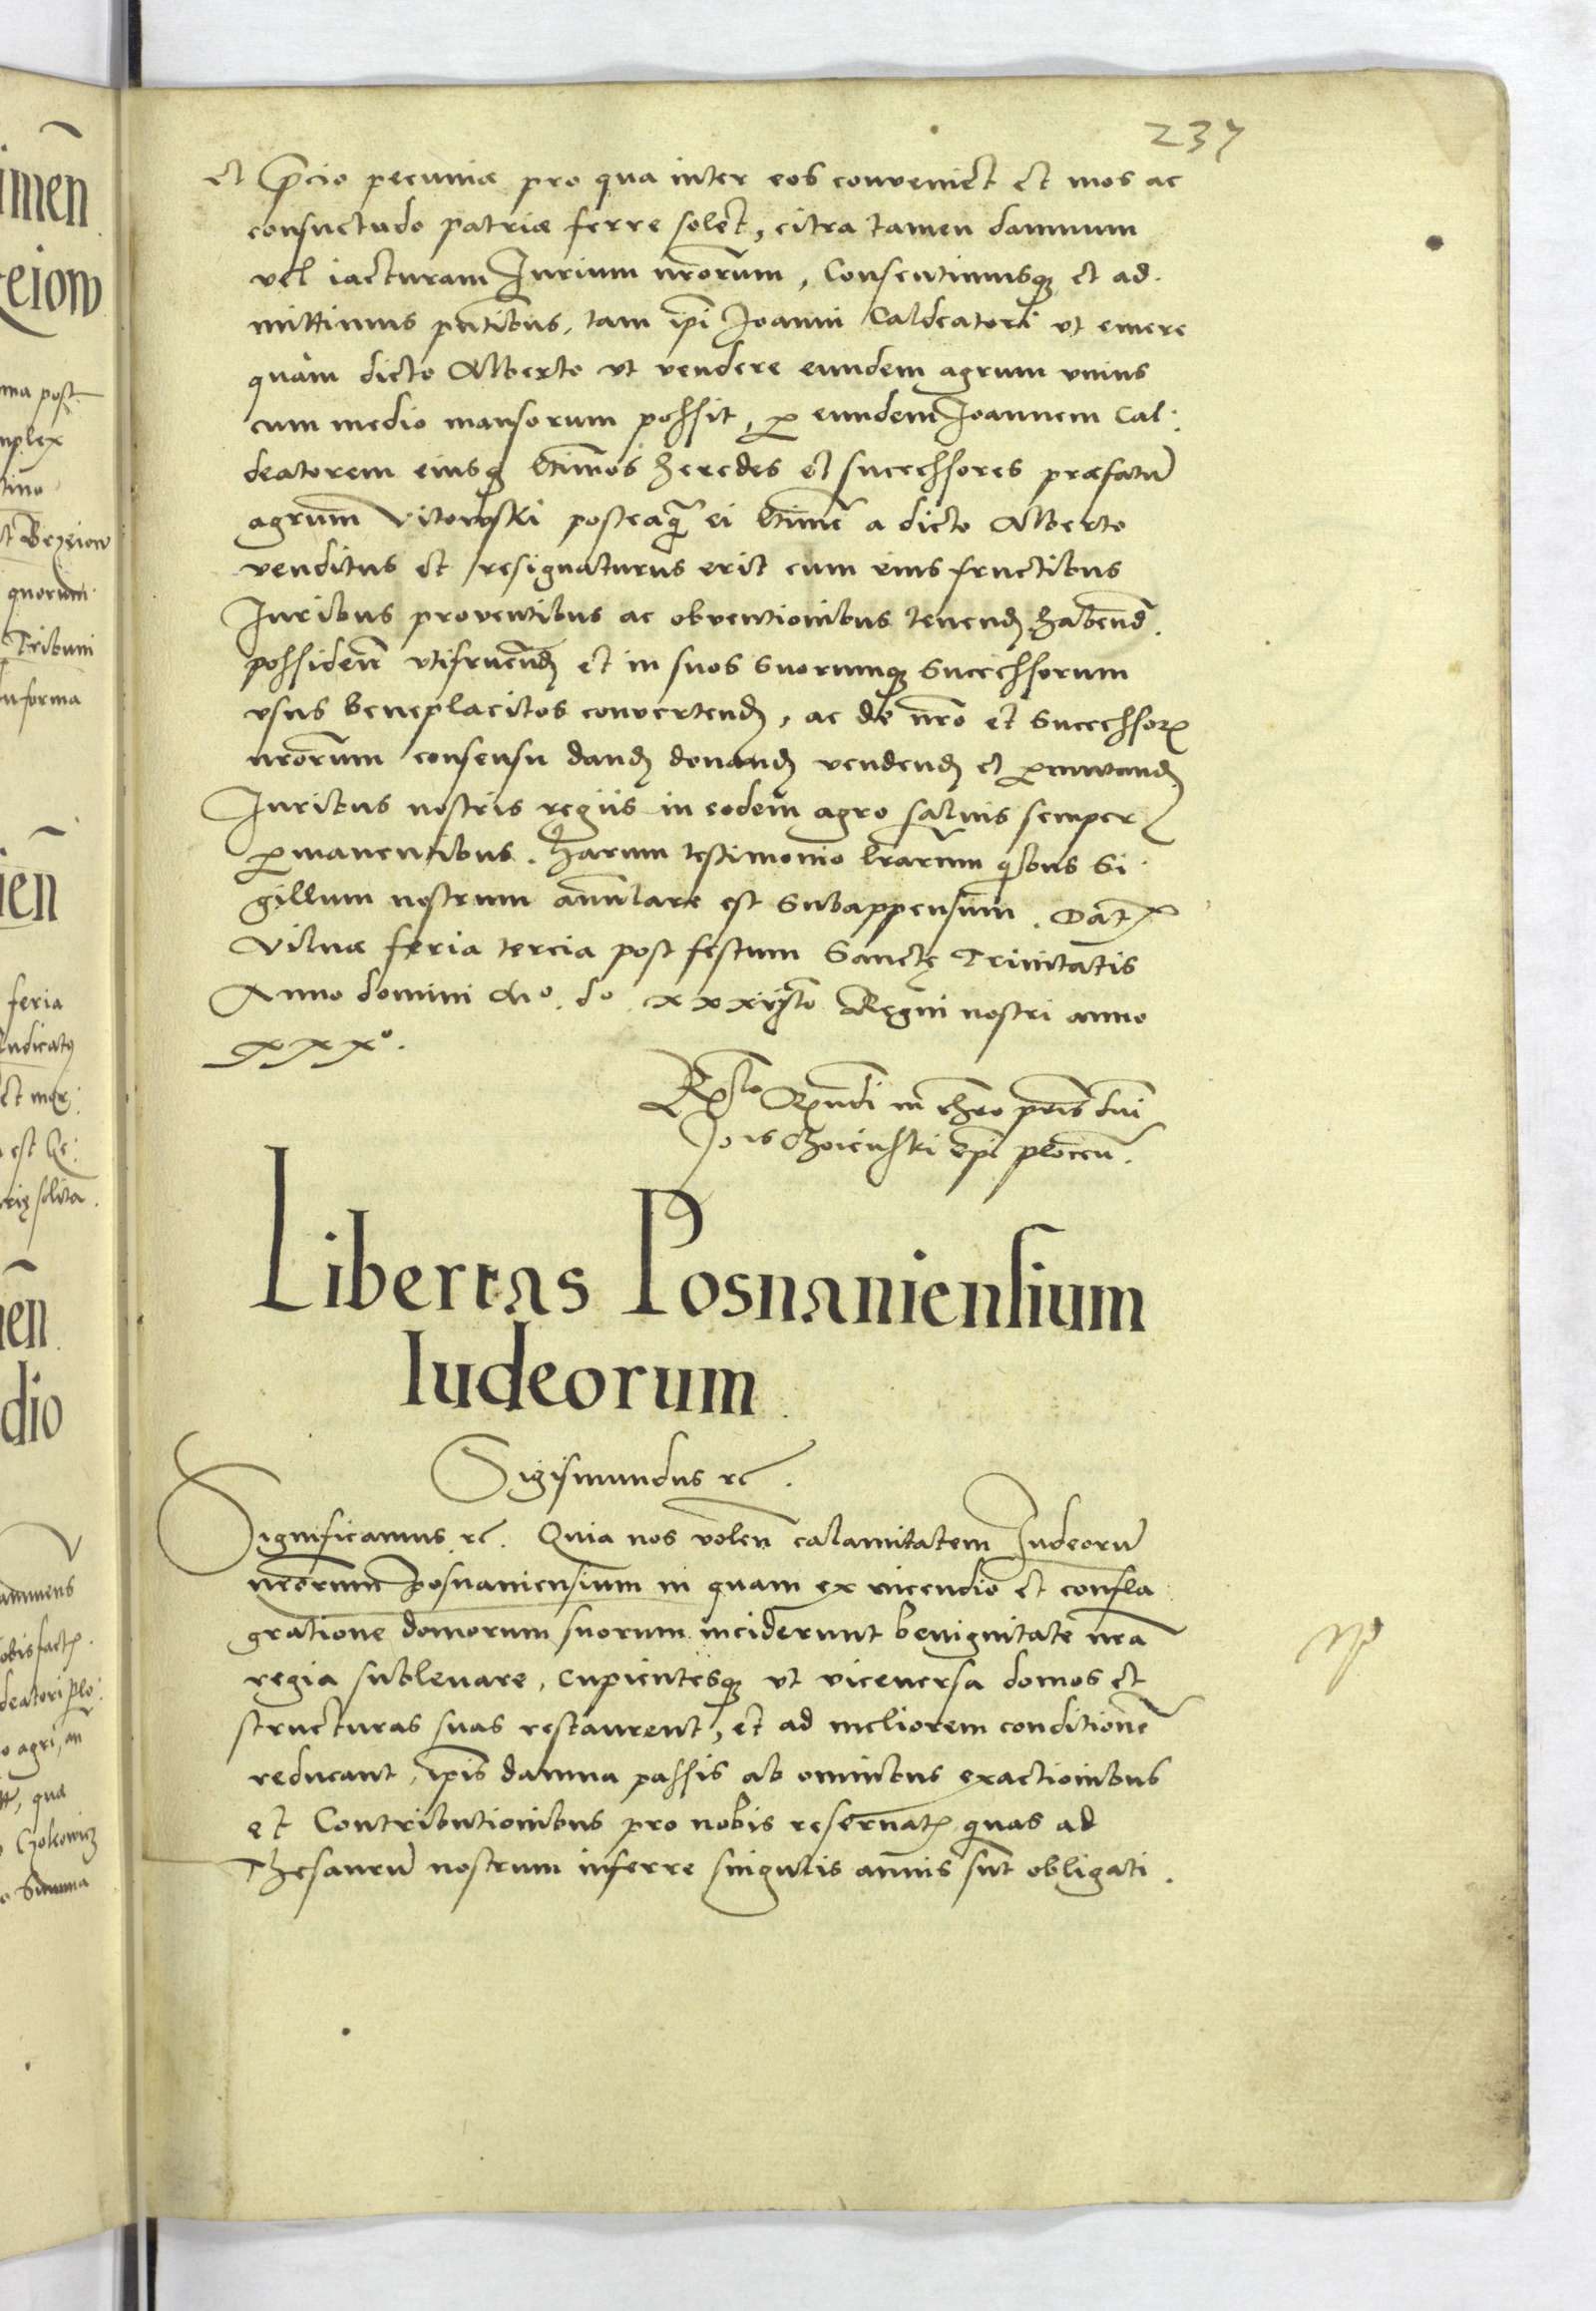 237
et p̄cio pecuniæ pro qua inter eos conveniet et mos ac
consuetudo patriæ ferre solet, citra tamen damnum
vel iacturam Jurium nr̄orum, Consentimusq; et ad
mittimus pn̄tibus, tam ip̄i Joanni Caldeatori ut emere
quàm dicto Alberto ut vendere eundem agrum unius
cum medio mansorum possit, ꝑ eundem Joannem Cal:
deatorem eiusq; ltīmos heredes et successores præfatū
agrum Vitowski posteaq̄ ei ltīme a dicto Alberto
venditus et resignaturus erit cum eius fructibus
Juribus proventibus ac obventionibus tenend habend.
possiden̄ utifruend et in suos suorumq; Successorum
usus beneplacitos convertend, ac de nr̄o et Successor
nr̄orum consensu dand donand vendend et ꝑmutand
Juribus nostris regiis in eodem agro salvis semper
ꝑmanentibus. Harum testimonio lr̄arum qbus Si
gillum nostrum annulare est Subappensum. Dat
Vilnæ feria tercia post festum Sanctę Trinitatis
Anno domini Mo. do. xxxvjto Regni nostri anno
xxxo.
Rndi in chr̄o pr̄is dn̄i
Jois Choienski Ep̄i plocen̄.
Libertas Posnaniensium
Iudeorum
Sigismundus rc.
Significamus rc. Quia nos volen̄ calamitatem Judeorū
nr̄orum Posnaniensium in quam ex incendio et confla
gratione domorum suorum inciderunt benignitate nr̄a
regia sublevare, cupientesq; ut viceversa domos et
structuras suas restaurent, et ad meliorem conditionē
reducant, ip̄is damna passis ab omnibus exactionibus
et Contributionibus pro nobis reservat quas ad
Thesaurū nostrum inferre singulis annis sunt obligati.